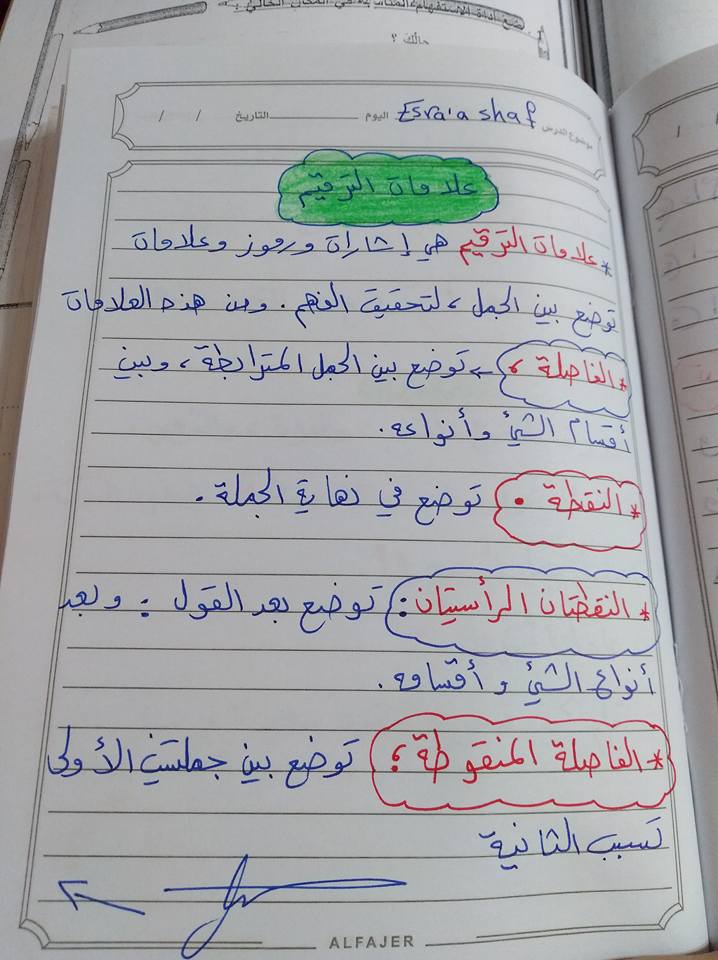 ضع أداة الاستفهام المناسبة في المكان الخالي :
حالك ؟
موضوع الدرس Esra'a shaf اليوم التاريخ / /
علامات الترقيم
* علامات الترقيم هي إشارات ورموز وعلامات
توضع بين الجمل ، لتحقيق الفهم . ومن هذه العلامات
* الفاصلة ، ← توضع بين الجمل المترابطة ، وبين
أقسام الشئ وأنواعه .
* النقطة . توضع في نهاية الجملة .
* النقطتان الرأسيتان : توضع بعد القول : وبعد
أنواع الشئ وأقسامه .
* الفاصلة المنقوطة ؛ توضع بين جملتين الأولى
تسبب الثانية
ALFAJER